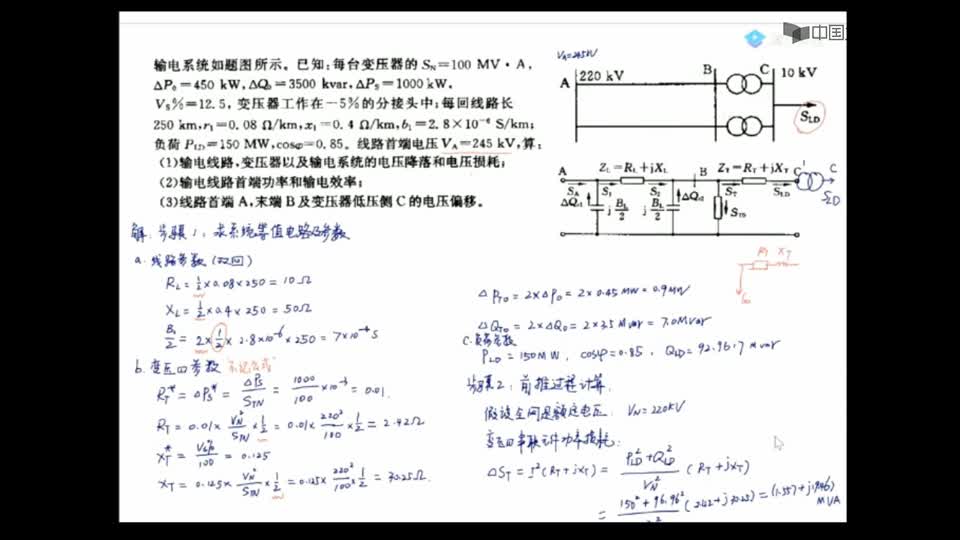 中国
输电系统如题图所示。已知:每台变压器的 S_N=100 MV·A,
ΔP₀=450 kW,ΔQ₀=3500 kvar,ΔP_S=1000 kW,
V_S%=12.5,变压器工作在-5%的分接头中;每回线路长
250 km,r₁=0.08 Ω/km,x₁=0.4 Ω/km,b₁=2.8×10⁻⁶ S/km;
负荷 P_LD=150 MW,cosφ=0.85。线路首端电压 V_A=245 kV,算:
(1)输电线路,变压器以及输电系统的电压降落和电压损耗;
(2)输电线路首端功率和输电效率;
(3)线路首端 A,末端 B 及变压器低压侧 C 的电压偏移。
V_A=245kV
A 220 kV B C 10 kV
S_LD
A Z_L=R_L+jX_L B Z_T=R_T+jX_T C' C
S_A S_1 S_2 S_T S_LD S_LD
ΔQ_c1 j B_L/2 j B_L/2 ΔQ_c2 S_T0
R_T X_T
解: 步骤1: 求系统等值电路及参数
a. 线路参数(双回)
R_L = 1/2 × 0.08 × 250 = 10 Ω
X_L = 1/2 × 0.4 × 250 = 50 Ω
B_L/2 = 2 × 1/2 × 2.8×10⁻⁶ × 250 = 7×10⁻⁴ S
b. 变压器参数
R_T* = ΔP_S* = ΔP_S/S_TN = 1000/100 ×10⁻³ = 0.01.
R_T = 0.01 × V_N²/S_TN × 1/2 = 0.01 × 220²/100 × 1/2 = 2.42Ω
X_T* = V_S%/100 = 0.125
X_T = 0.125 × V_N²/S_TN × 1/2 = 0.125 × 220²/100 × 1/2 = 30.25Ω.
ΔP_T0 = 2×ΔP₀ = 2×0.45 MW = 0.9MW
ΔQ_T0 = 2×ΔQ₀ = 2×3.5 Mvar = 7.0Mvar
c. 负荷参数
P_LD = 150MW, cosφ = 0.85, Q_LD = 92.9617 Mvar
步骤2: 前推过程计算.
假设全网是额定电压: V_N = 220kV
变压器串联元件功率损耗:
ΔS_T = I²(R_T+jX_T) = (P_LD²+Q_LD²)/V_N² (R_T+jX_T)